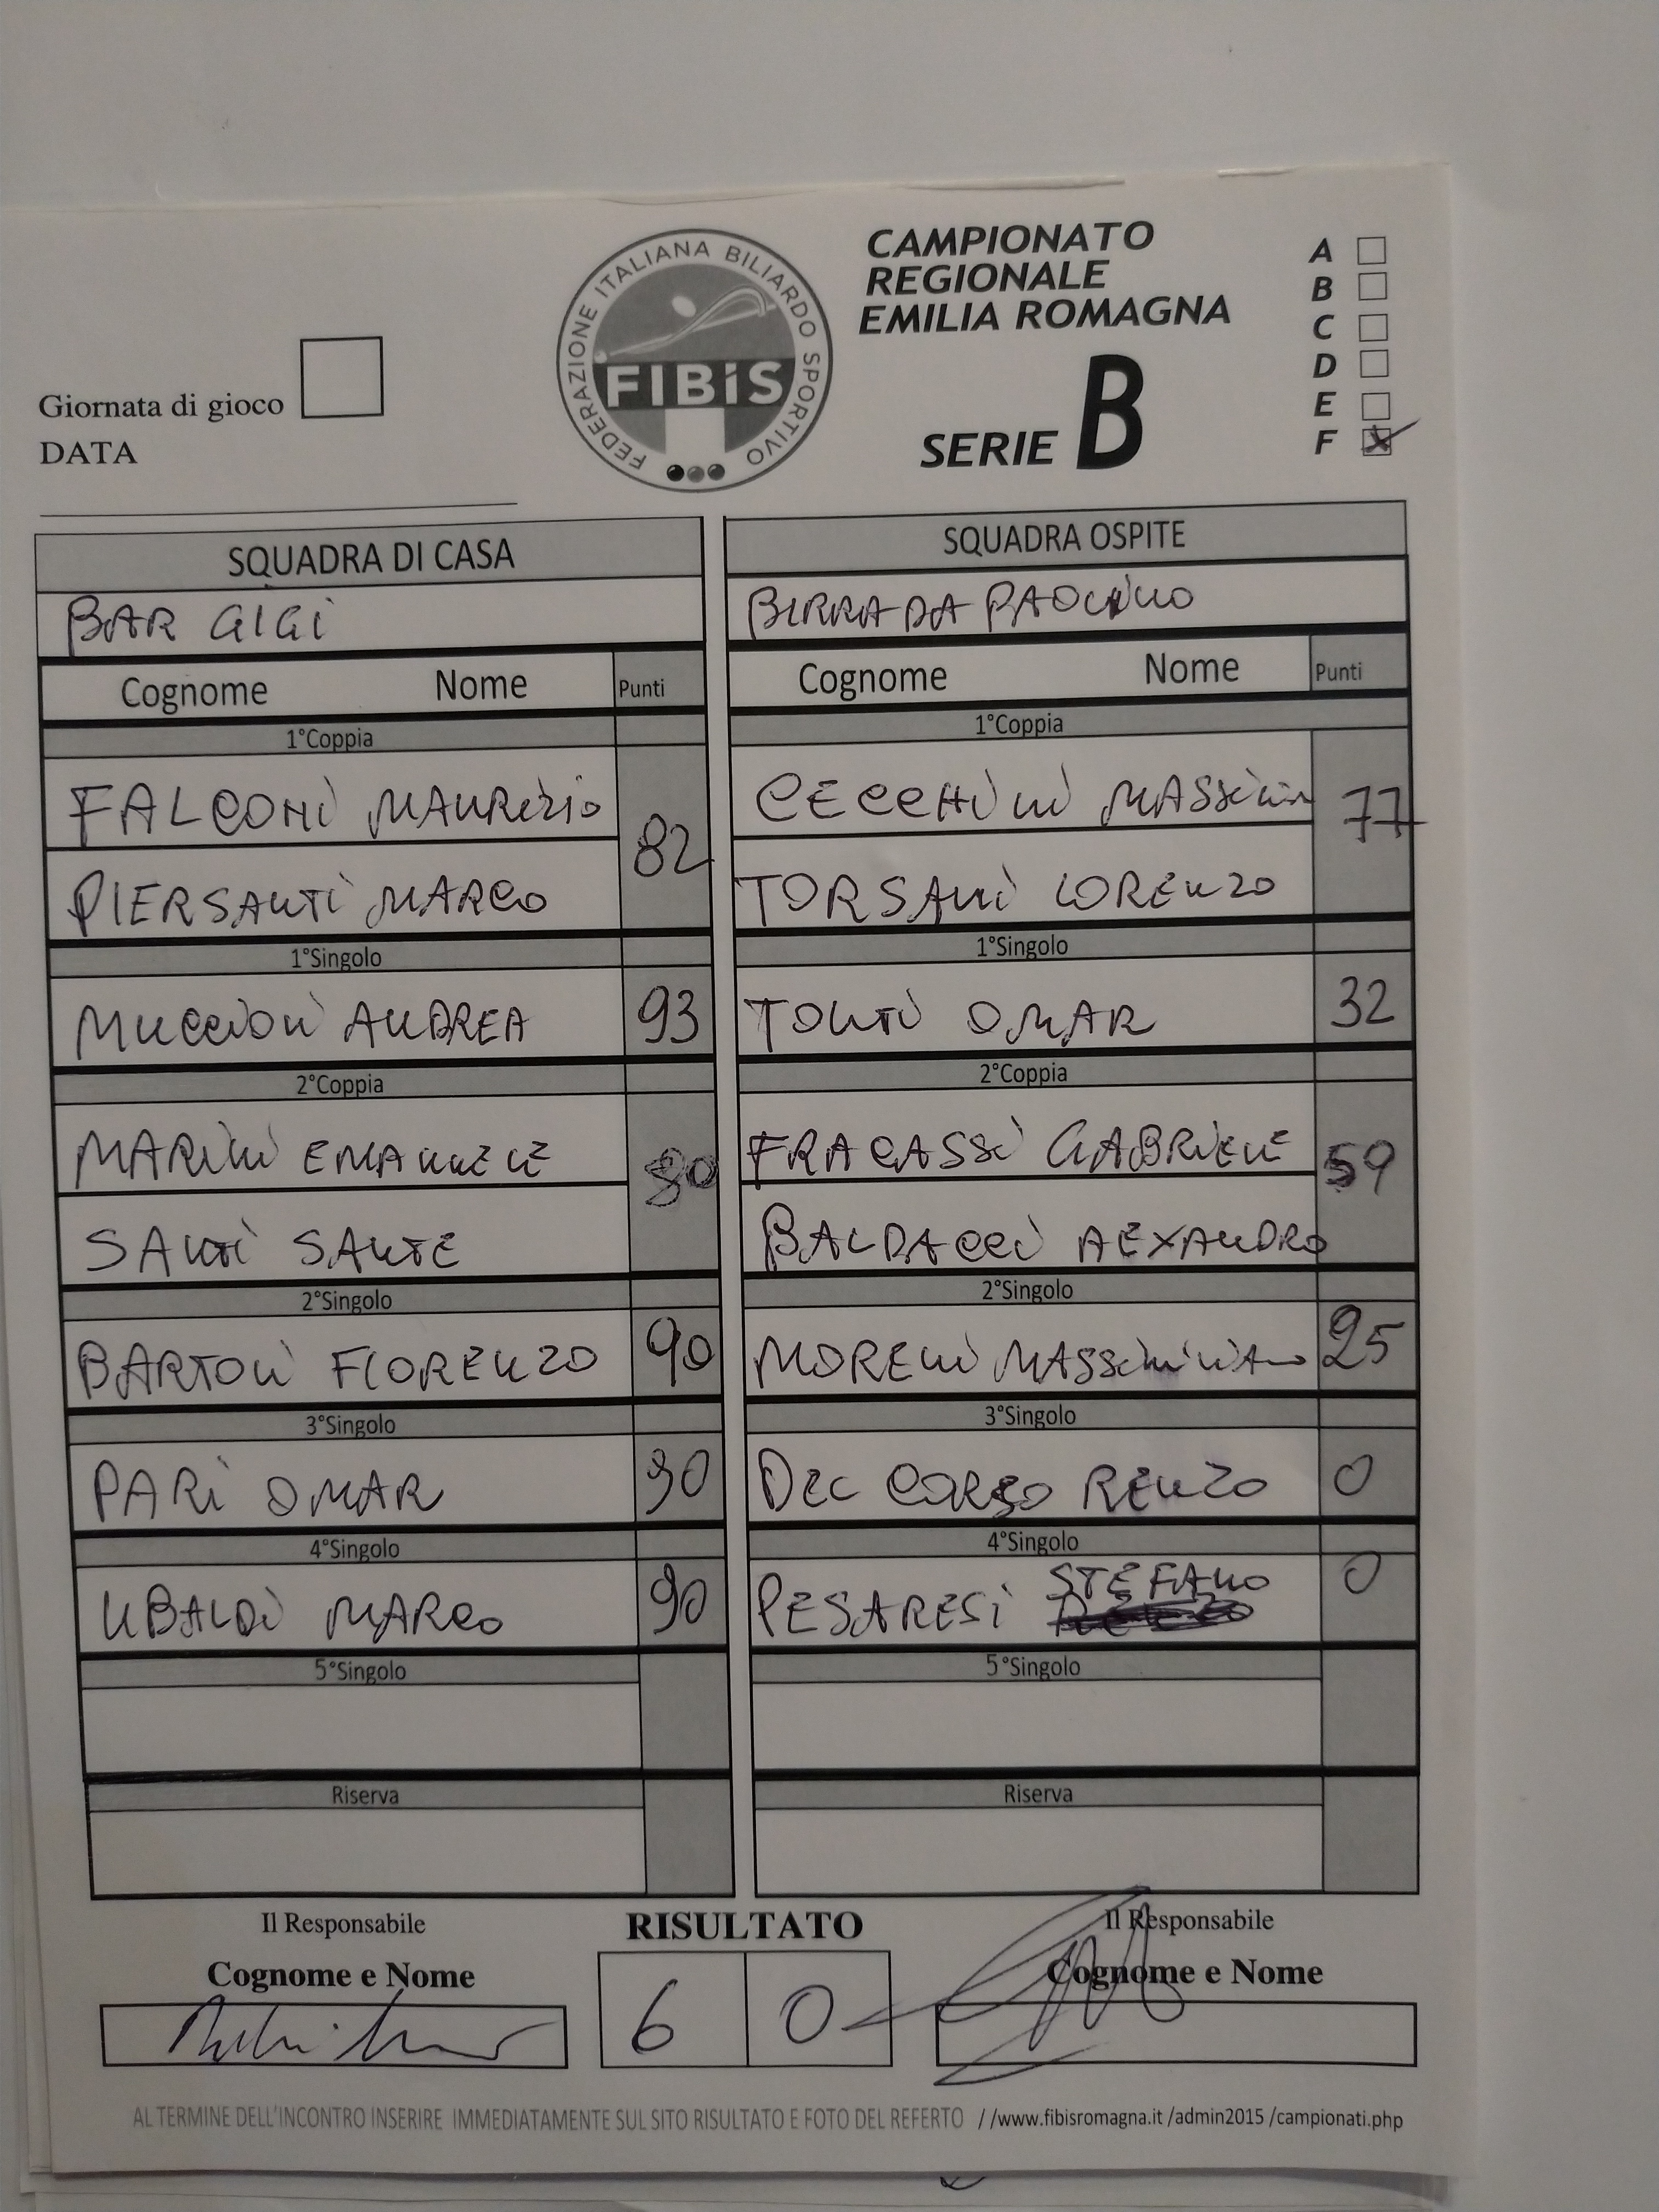 FEDERAZIONE ITALIANA BILIARDO SPORTIVO
FIBiS
CAMPIONATO
REGIONALE
EMILIA ROMAGNA
SERIE B
A
B
C
D
E
F
Giornata di gioco
DATA
SQUADRA DI CASA
SQUADRA OSPITE
BAR GIGI
BIRRA DA PAOLINO
Cognome Nome Punti
Cognome Nome Punti
1°Coppia
1°Coppia
FALCONI MAURIZIO
82
PIERSANTI MARCO
CECCHINI MASSIMO
77
TORSANI LORENZO
1°Singolo
1°Singolo
MUCCIOLI ANDREA 93
TONTI OMAR 32
2°Coppia
2°Coppia
MARINI EMANUELE
80
SANTI SANTE
FRACASSI GABRIELE
59
BALDACCI AEXANDRO
2°Singolo
2°Singolo
BARTOLI FIORENZO 90
MORENI MASSIMILIANO 25
3°Singolo
3°Singolo
PARI OMAR 90
DEL CORSO RENZO 0
4°Singolo
4°Singolo
UBALDI MARCO 90
PESARESI STEFANO 0
5°Singolo
5°Singolo
Riserva
Riserva
Il Responsabile
RISULTATO
Il Responsabile
Cognome e Nome
Cognome e Nome
6 0
AL TERMINE DELL'INCONTRO INSERIRE IMMEDIATAMENTE SUL SITO RISULTATO E FOTO DEL REFERTO //www.fibisromagna.it /admin2015 /campionati.php